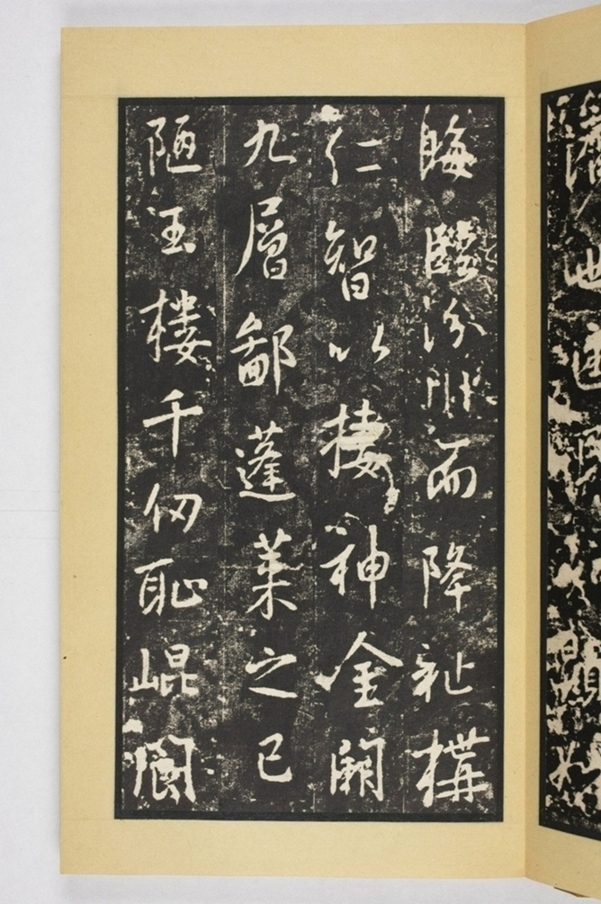 晦臨汾川而降祉構
仁智以棲神金闕
九層鄙蓬萊之已
陋玉樓千仞恥崐閬